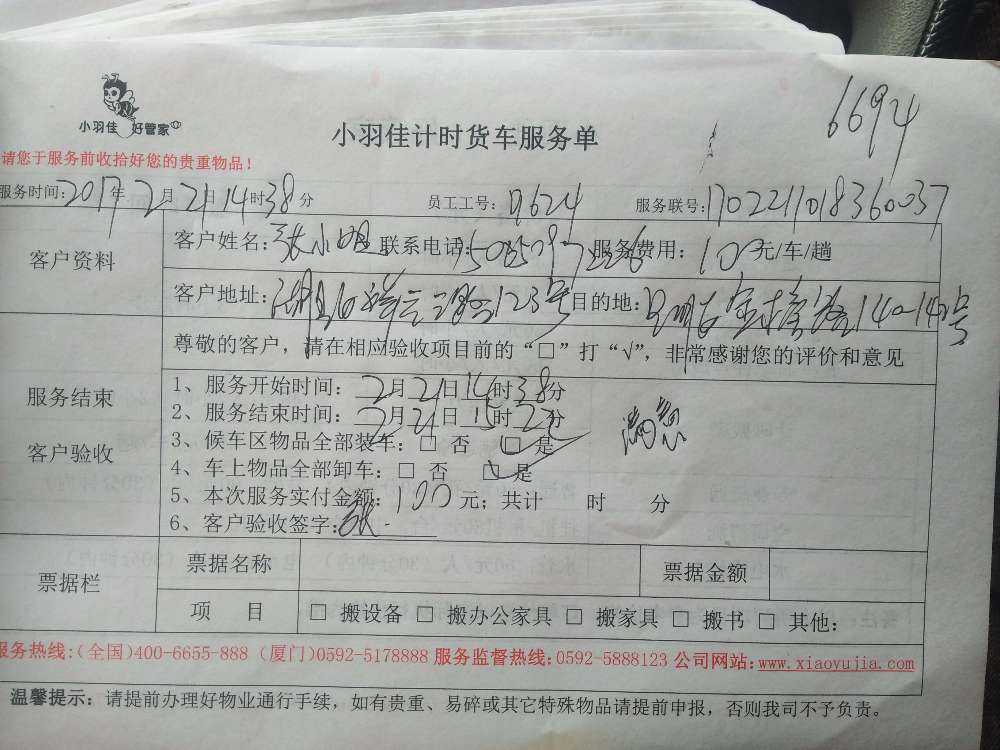 小羽佳 好管家
6694
小羽佳计时货车服务单
请您于服务前收拾好您的贵重物品！
服务时间：2017年2月21日14时38分 员工工号：9624 服务联号：1702211018360037
客户资料
客户姓名：张小姐 联系电话： 服务费用：100元/车/趟
客户地址：湖里祥云路123号 目的地：路140-142号
尊敬的客户，请在相应验收项目前的“□”打“√”，非常感谢您的评价和意见
服务结束
客户验收
1、服务开始时间：2月21日14时38分
2、服务结束时间：2月21日15时22分
满意
3、候车区物品全部装车：□ 否 □ 是
4、车上物品全部卸车：□ 否 □ 是
5、本次服务实付金额：100元；共计 时 分
6、客户验收签字：张
票据栏
票据名称 票据金额
项 目 □ 搬设备 □ 搬办公家具 □ 搬家具 □ 搬书 □ 其他：
服务热线：(全国)400-6655-888 (厦门)0592-5178888 服务监督热线：0592-5888123 公司网站：www.xiaoyujia.com
温馨提示：请提前办理好物业通行手续，如有贵重、易碎或其它特殊物品请提前申报，否则我司不予负责。